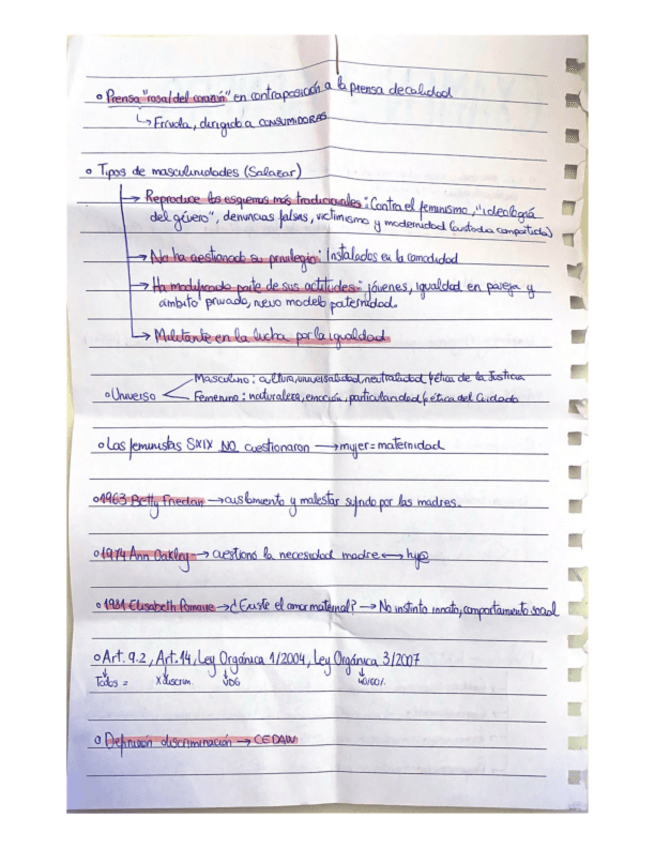 o Prensa "rosa/del corazón" en contraposición a la prensa de calidad
↳ Frívola, dirigido a CONSUMIDORES
o Tipos de masculinidades (Salazar)
→ Reproduce los esquemas más tradicionales: Contra el feminismo, "ideología
del género", denuncias falsas, victimismo y modernidad (custodia compartida)
→ No ha cuestionado su privilegio: Instalados en la comodidad
→ Ha modificado parte de sus actitudes: jóvenes, igualdad en pareja y
ámbito privado, nuevo modelo paternidad.
→ Militante en la lucha por la igualdad
Masculino: cultura, universalidad, neutralidad y ética de la Justicia
o Universo
Femenino: naturaleza, emoción, particularidad y ética del Cuidado
o Las feministas SXIX NO cuestionaron → mujer = maternidad
o 1963 Betty Friedan → aislamiento y malestar sufrido por las madres.
o 1974 Ann Oakley → cuestionó la necesidad madre ↔ hij@
o 1981 Elisabeth → ¿Existe el amor maternal? → No instinto innato, comportamiento social
o Art. 9.2, Art. 14, Ley Orgánica 1/2004, Ley Orgánica 3/2007
Todos = X discrim. VDG 40/60%.
o Definición discriminación → CEDAW